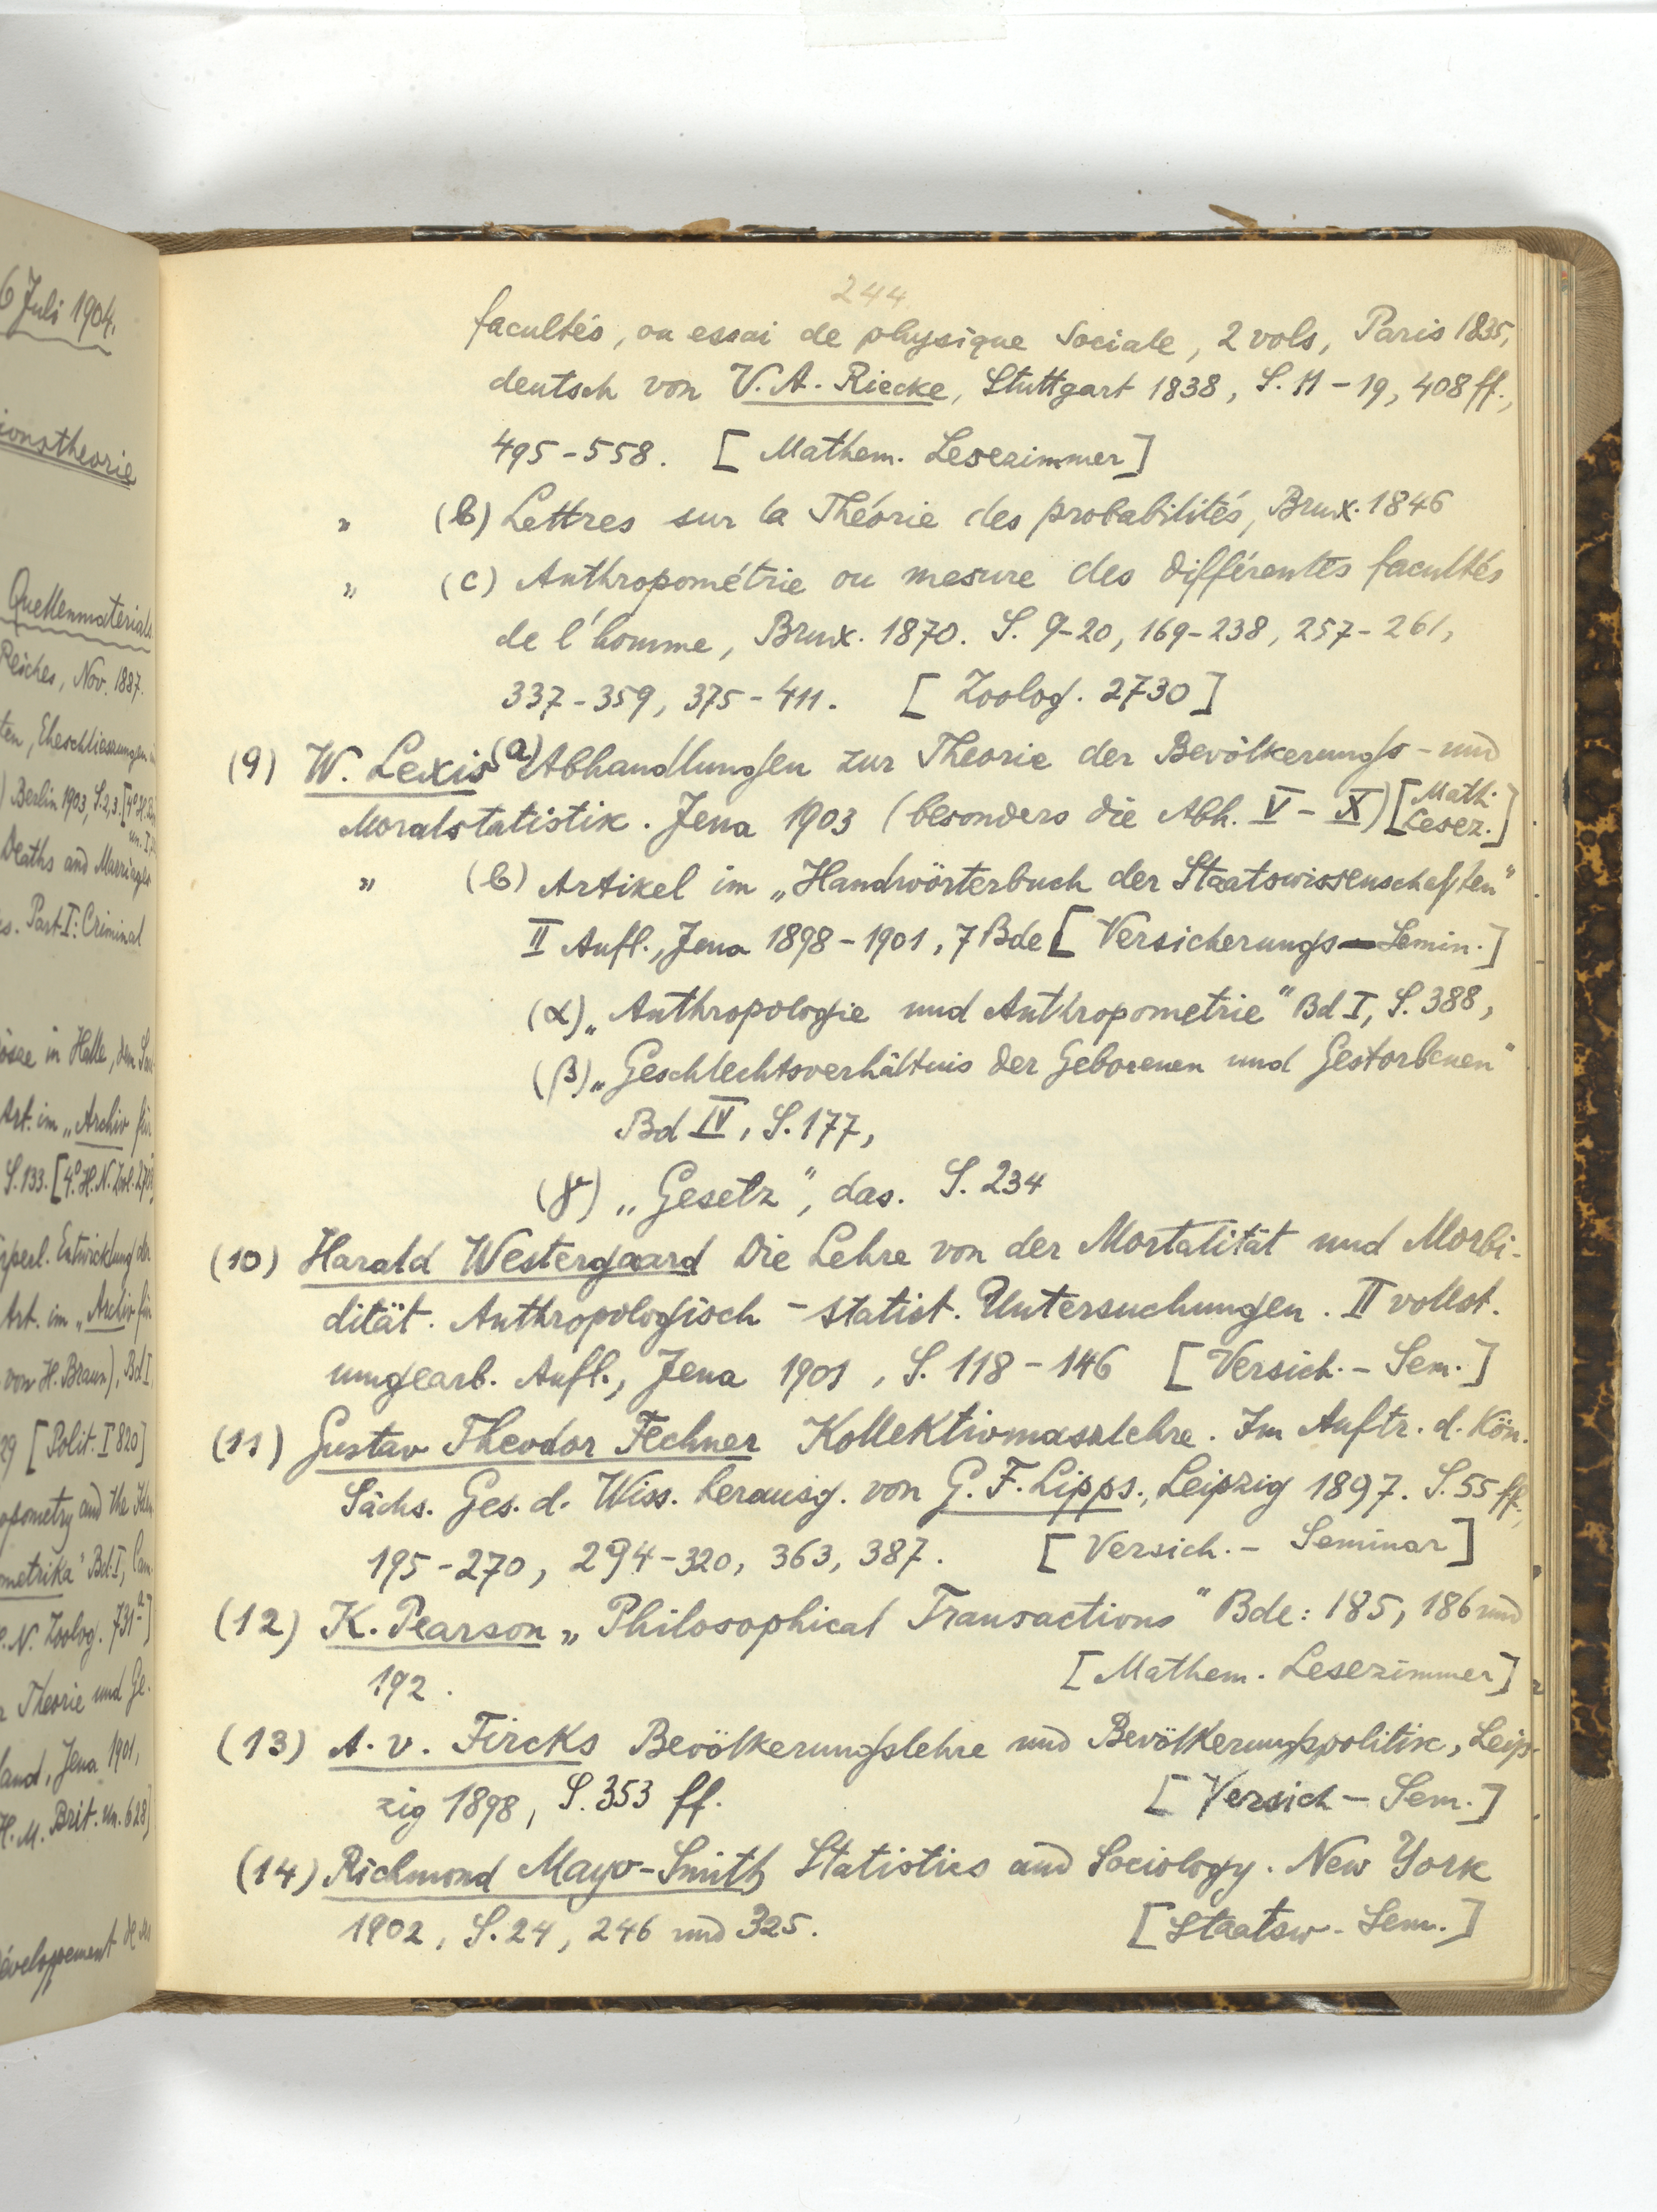 6 Juli 1904.
ionstheorie
Quellenmaterial
Reiches, Nov. 1887.
ten, Eheschliessungen
) Berlin 1903, S.2,3. [4° H.
Deaths and Marriages
es. Part I: Criminal
in Halle, den
Art. im „Archiv für
S. 133. [4° H. N. Zool.
perl. Entwicklung der
Art. im „Archiv für
von H. Braun), Bd I
29 [Polit. I 820]
opometry and the
ometrika" Bd. I, Cam
H. N. Zoolog. 731a]
Theorie und Ge.
land, Jena 1901,
H. M. Brit. un. 628]
développement
244
facultés, ou essai de physique Sociale, 2 vols, Paris 1835,
deutsch von V. A. Riecke, Stuttgart 1838, S. 11-19, 408 ff.,
495-558. [Mathem. Lesezimmer]
" (b) Lettres sur la Théorie des probabilités, Brux. 1846
" (c) Anthropométrie ou mesure des différentes facultés
de l'homme, Brux. 1870. S. 9-20, 169-238, 257-261,
337-359, 375-411. [Zoolog. 2730]
(9) W. Lexis (a) Abhandlungen zur Theorie der Bevölkerungs- und
Moralstatistik. Jena 1903 (besonders die Abh. V-X) [Math. Lesez.]
" (b) Artikel im „Handwörterbuch der Staatswissenschaften"
II Aufl., Jena 1898-1901, 7 Bde [Versicherungs-Semin.]
(α) „Anthropologie und Anthropometrie" Bd I, S. 388,
(β) „Geschlechtsverhältnis der Geborenen und Gestorbenen"
Bd IV, S. 177,
(γ) „Gesetz", das. S. 234
(10) Harald Westergaard Die Lehre von der Mortalität und Morbi-
dität. Anthropologisch-statist. Untersuchungen. II vollst.
umgearb. Aufl., Jena 1901, S. 118-146 [Versich.-Sem.]
(11) Gustav Theodor Fechner Kollektivmasslehre. Im Auftr. d. Kön.
Sächs. Ges. d. Wiss. herausg. von G. F. Lipps., Leipzig 1897. S. 55 ff.,
195-270, 294-320, 363, 387. [Versich.-Seminar]
(12) K. Pearson „Philosophical Transactions" Bde: 185, 186 und
192. [Mathem. Lesezimmer]
(13) A. v. Fircks Bevölkerungslehre und Bevölkerungspolitik, Leip-
zig 1898, S. 353 ff. [Versich-Sem.]
(14) Richmond Mayo-Smith Statistics and Sociology. New York
1902, S. 24, 246 und 325. [Staatsw-Sem.]